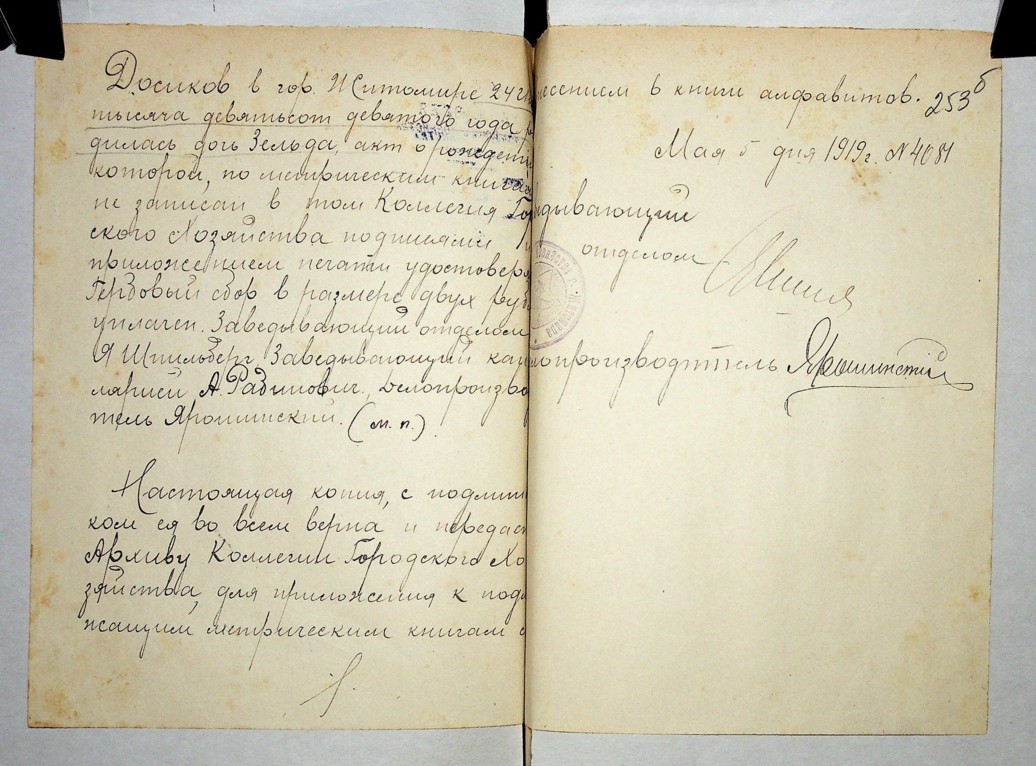 Досиков в гор. Житомире 24
тысяча девятьсот девятого года
дилась дочь Зельда, акт о рождении
которой, по метрическим книгам
не записан в том Коллегия Го
ского Хозяйства подписями и
приложением печати удостоверя
Гербовый сбор в размере двух руб
уплачен. Заведывающий отделом
Я Шпильберг Заведывающий кан
лярией А. Рабинович, Делопроизво
тель Ярошинский. (м. п.)
Настоящая копия, с подлин
ком ея во всем верна и передает
Архиву Коллегии Городского Хо
зяйства, для приложения к подл
жащим метрическим книгам с
несением в книги алфавитов.
253б
Мая 5 дня 1919 г. № 4081
едывающий
отделом
лопроизводитель Ярошинский